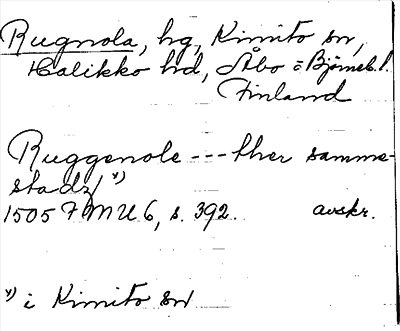 Rugnola, hg, Kimito sn,
Halikko hd, Åbo = Björneb. l.
Finland
Ruggenole --- ther samme-
stadz/ x)
1505 FMU 6, s. 392. avskr.
x) i Kimito sn